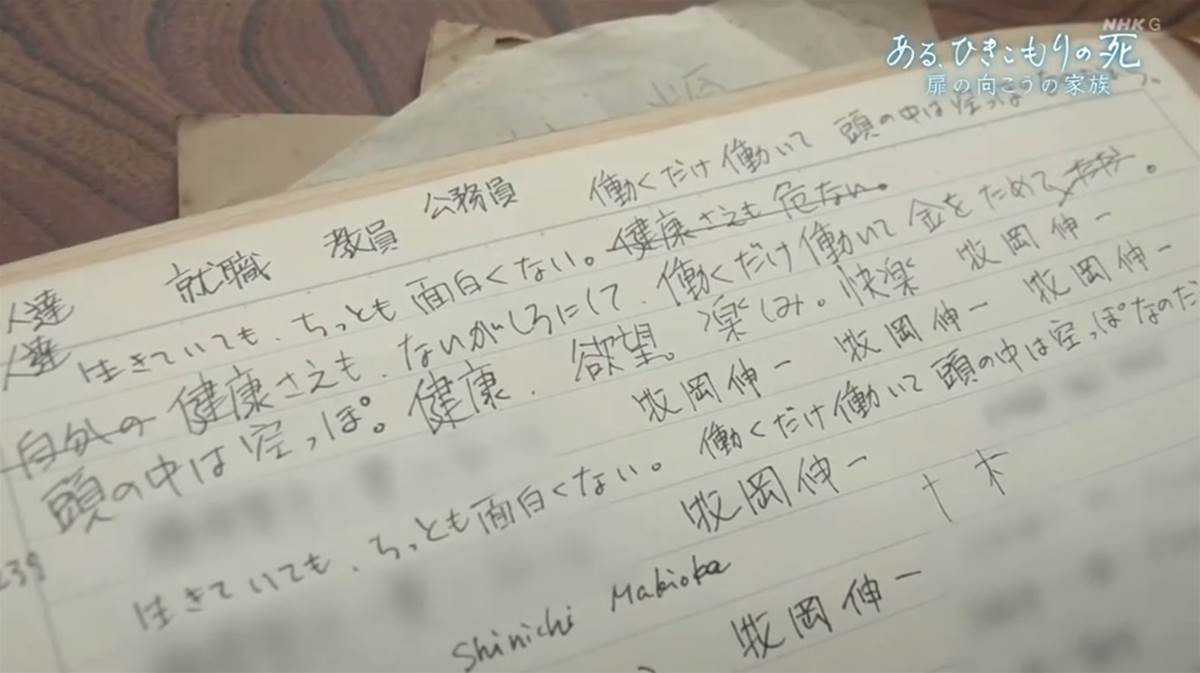 NHK G
ある、ひきこもりの死
扉の向こうの家族
働くだけ働いて 頭の中は空っぽ
就職 教員 公務員
人達
生きていても、ちっとも面白くない。健康さえも危ない。
人達
自分の健康さえも、ないがしろにして、働くだけ働いて金をためて
頭の中は空っぽ。健康、欲望。楽しみ。快楽 牧岡伸一
牧岡伸一 牧岡伸一 牧岡伸一
生きていても、ちっとも面白くない。働くだけ働いて頭の中は空っぽなのだ
牧岡伸一 十 木
239
Shinichi Makioka
牧岡伸一